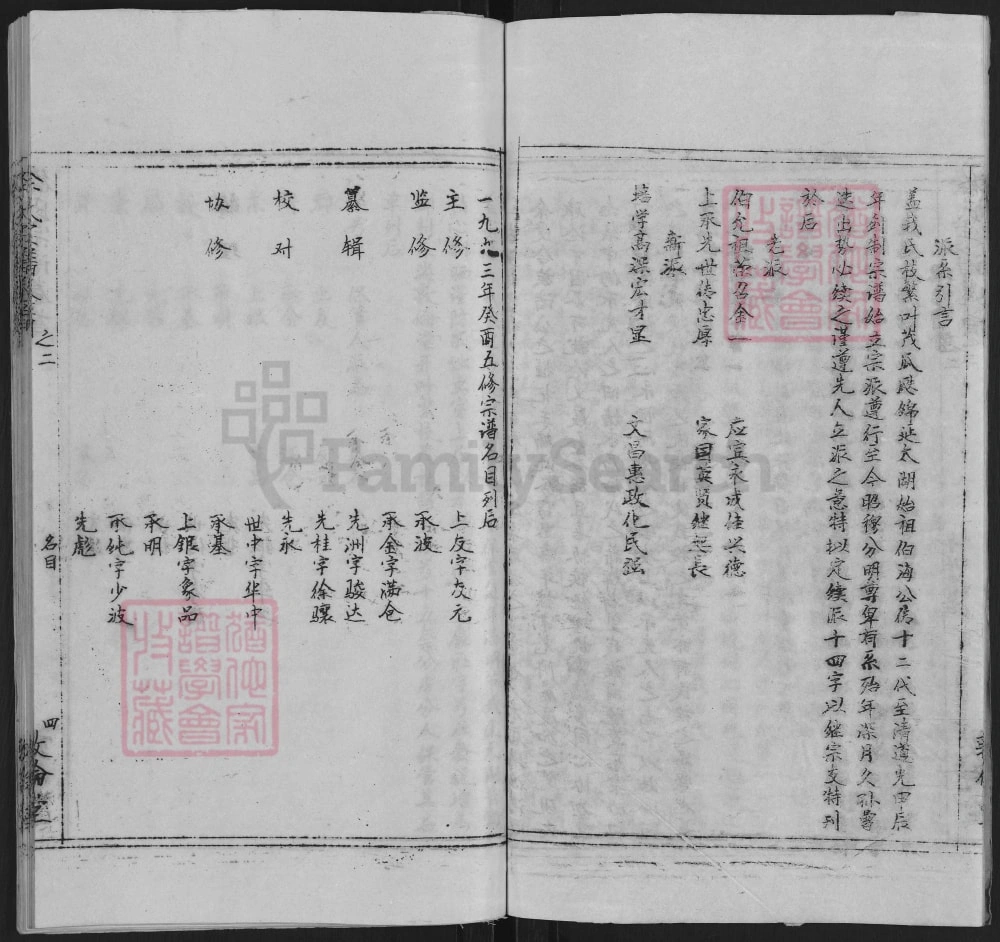 派系引言
盖我氏枝繁叶茂瓜瓞锦延太湖始祖伯海公居十二代至清道光甲辰
年创制宗谱始立宗派遵行至今昭穆分明尊卑有系殆年深月久孙曾
迭出势必续之谨遵先人立派之意特拟定续派十四字以继宗支特列
於后
老派
伯允祖 召金一 应宜永成佳兴德
上承先世传忠厚 家国英贤继起长
新派
培学高深宏才显 文昌惠政化民强
一九九三年癸酉五修宗谱名目列后
主修 上友字友元
监修 承波
承金字满仓
纂辑 先洲字骏达
先桂字徐骧
校对 先永
世中字华中
协修 承基
上银字象品
承明
承纯字少波
先彪
之二
名目
四
敦伦堂
FamilySearch